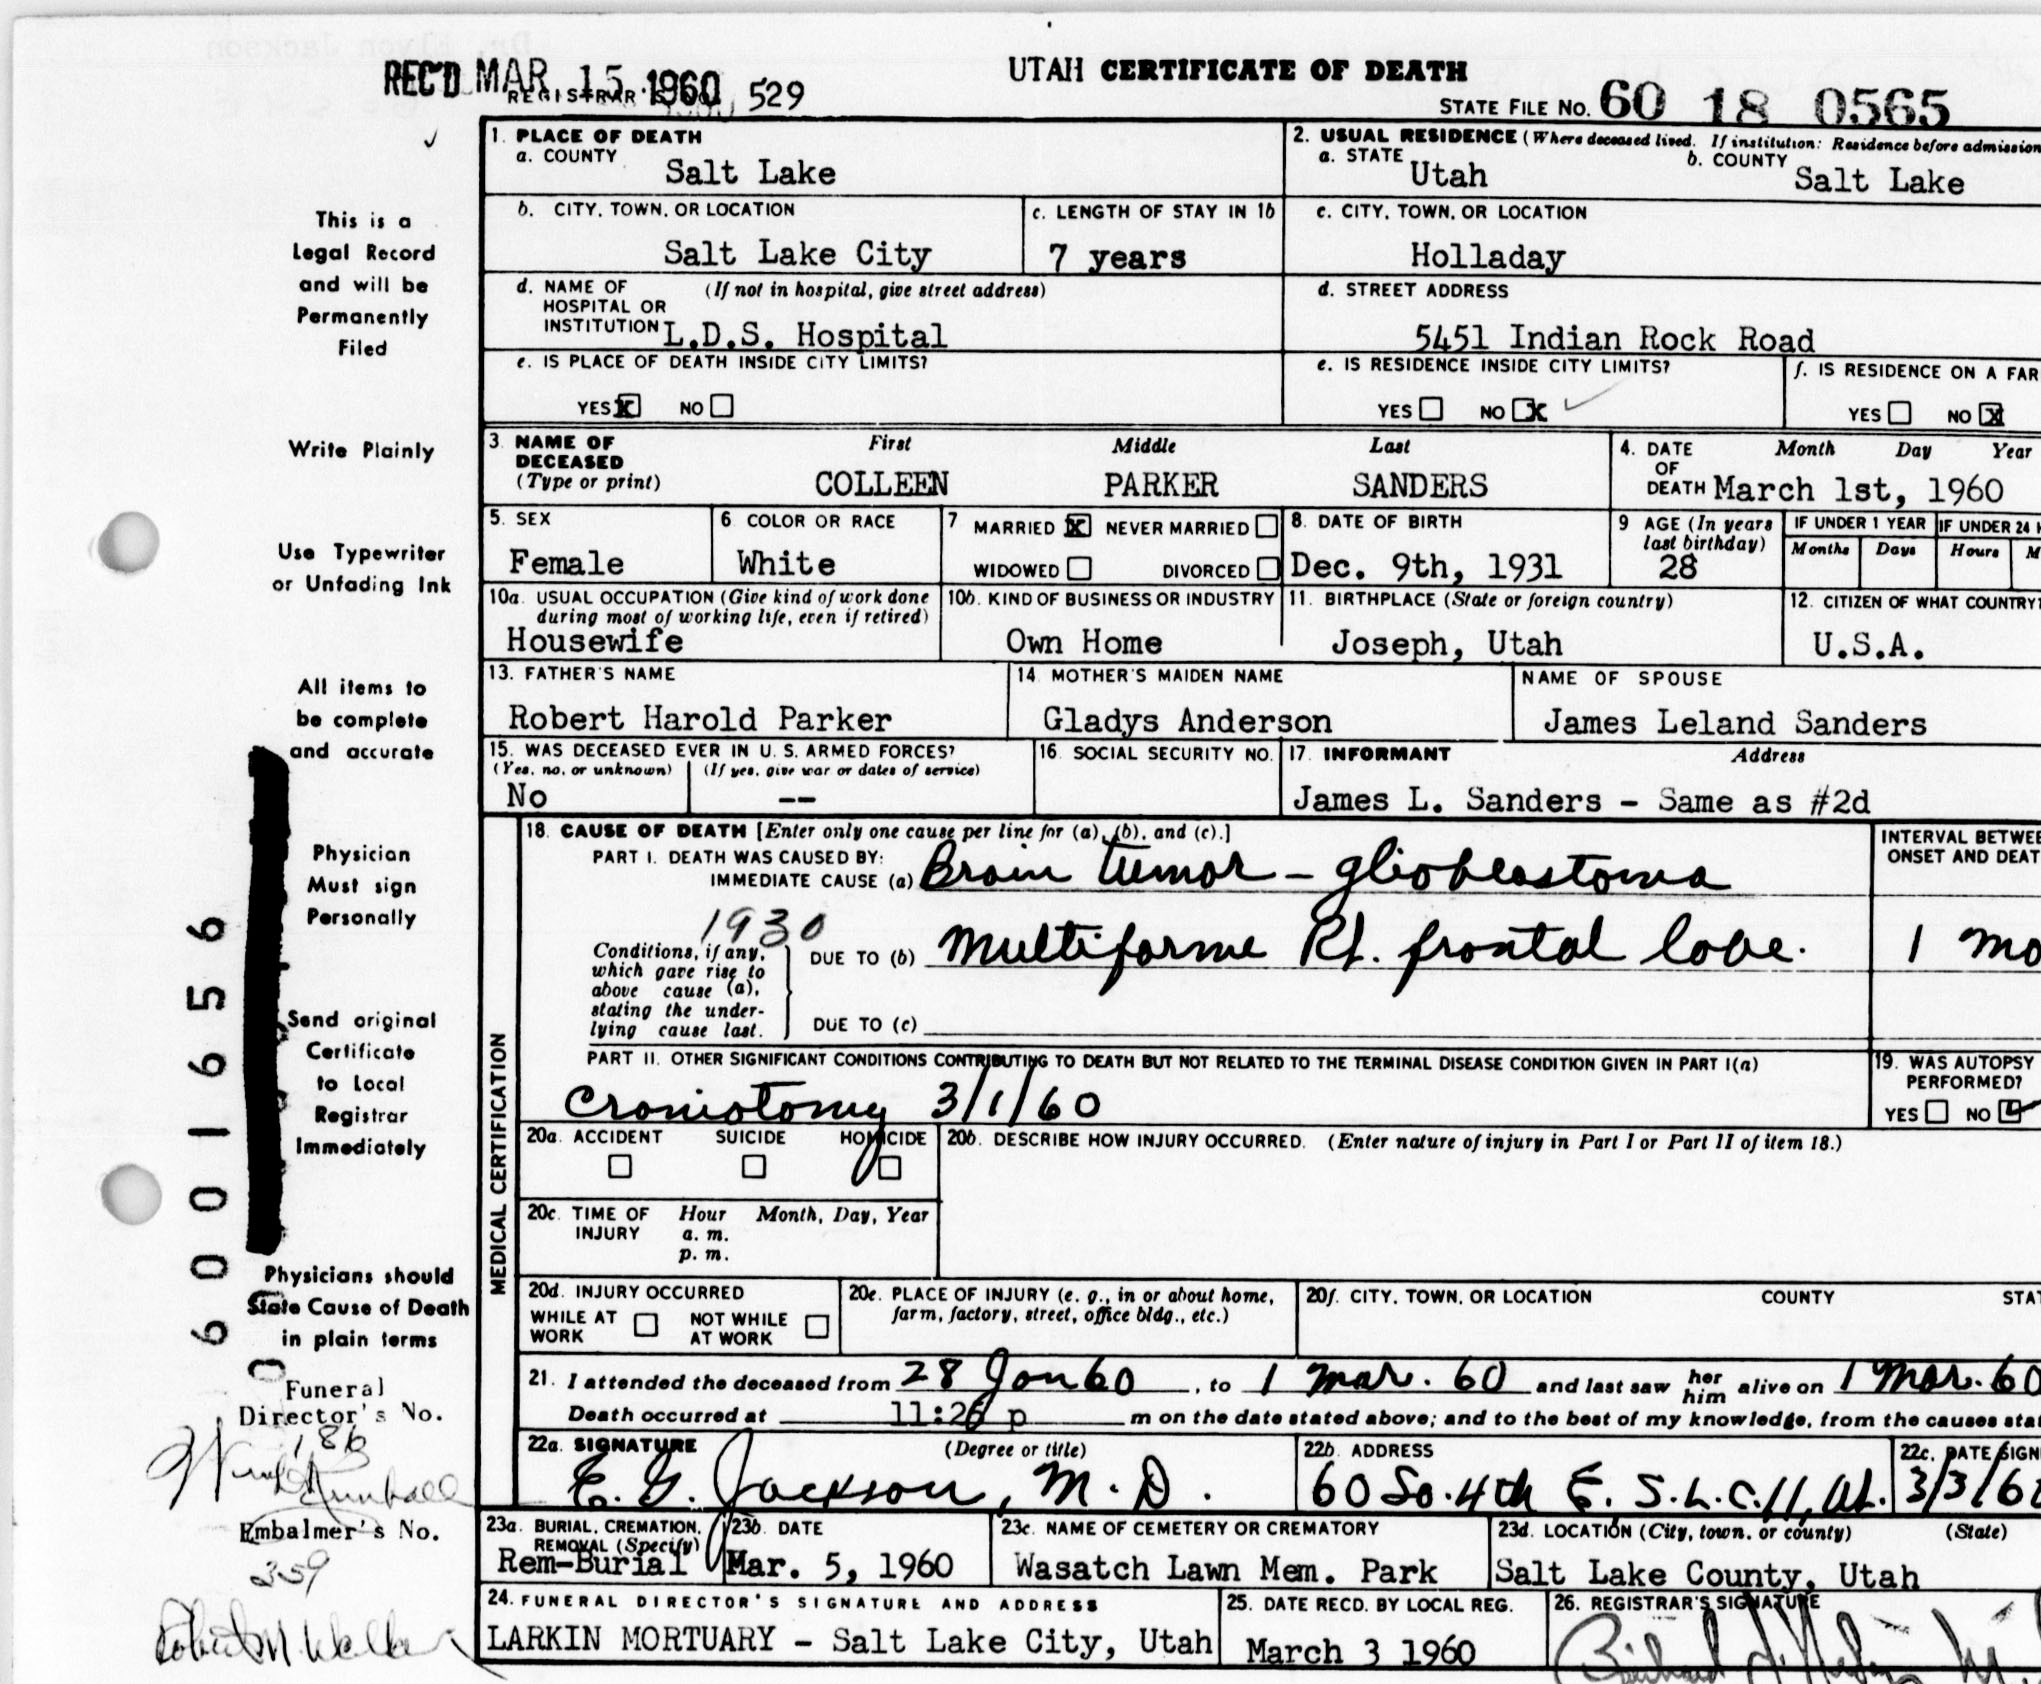 REC'D MAR 15 1960 529
REGISTRAR'S
UTAH CERTIFICATE OF DEATH
STATE FILE NO. 60 18 0565
1. PLACE OF DEATH
a. COUNTY
Salt Lake
2. USUAL RESIDENCE (Where deceased lived. If institution: Residence before admission
a. STATE
Utah
b. COUNTY
Salt Lake
b. CITY, TOWN, OR LOCATION
Salt Lake City
c. LENGTH OF STAY IN 1b
7 years
c. CITY, TOWN, OR LOCATION
Holladay
d. NAME OF (If not in hospital, give street address)
HOSPITAL OR
INSTITUTION L.D.S. Hospital
d. STREET ADDRESS
5451 Indian Rock Road
e. IS PLACE OF DEATH INSIDE CITY LIMITS?
YES X NO
e. IS RESIDENCE INSIDE CITY LIMITS?
YES NO X
f. IS RESIDENCE ON A FAR
YES NO X
3. NAME OF DECEASED
(Type or print)
First Middle Last
COLLEEN PARKER SANDERS
4. DATE OF DEATH
Month Day Year
March 1st, 1960
5. SEX
Female
6. COLOR OR RACE
White
7. MARRIED X NEVER MARRIED
WIDOWED DIVORCED
8. DATE OF BIRTH
Dec. 9th, 1931
9. AGE (In years
last birthday)
28
IF UNDER 1 YEAR
Months Days
IF UNDER 24 H
Hours M
10a. USUAL OCCUPATION (Give kind of work done
during most of working life, even if retired)
Housewife
10b. KIND OF BUSINESS OR INDUSTRY
Own Home
11. BIRTHPLACE (State or foreign country)
Joseph, Utah
12. CITIZEN OF WHAT COUNTRY?
U.S.A.
13. FATHER'S NAME
Robert Harold Parker
14. MOTHER'S MAIDEN NAME
Gladys Anderson
NAME OF SPOUSE
James Leland Sanders
15. WAS DECEASED EVER IN U.S. ARMED FORCES?
(Yes, no, or unknown) (If yes, give war or dates of service)
No --
16. SOCIAL SECURITY NO.
17. INFORMANT Address
James L. Sanders - Same as #2d
MEDICAL CERTIFICATION
18. CAUSE OF DEATH [Enter only one cause per line for (a), (b), and (c).]
PART I. DEATH WAS CAUSED BY:
IMMEDIATE CAUSE (a) Brain tumor - glioblastoma
1930
Conditions, if any,
which gave rise to
above cause (a),
stating the under-
lying cause last.
DUE TO (b) Multiforme Rt. frontal lobe.
DUE TO (c)
INTERVAL BETWEE
ONSET AND DEAT
1 mo
PART II. OTHER SIGNIFICANT CONDITIONS CONTRIBUTING TO DEATH BUT NOT RELATED TO THE TERMINAL DISEASE CONDITION GIVEN IN PART I(a)
Craniotomy 3/1/60
19. WAS AUTOPSY
PERFORMED?
YES NO
20a. ACCIDENT SUICIDE HOMICIDE
20b. DESCRIBE HOW INJURY OCCURRED. (Enter nature of injury in Part I or Part II of item 18.)
20c. TIME OF INJURY
Hour Month, Day, Year
a. m.
p. m.
20d. INJURY OCCURRED
WHILE AT WORK NOT WHILE AT WORK
20e. PLACE OF INJURY (e. g., in or about home,
farm, factory, street, office bldg., etc.)
20f. CITY, TOWN, OR LOCATION COUNTY STAT
21. I attended the deceased from 28 Jan 60, to 1 Mar. 60 and last saw her him alive on 1 Mar. 60
Death occurred at 11:26 p m on the date stated above; and to the best of my knowledge, from the causes stat
22a. SIGNATURE (Degree or title)
E. G. Jackson, M.D.
22b. ADDRESS
60 So. 4th E. S.L.C. 11, Ut.
22c. DATE SIGN
3/3/60
23a. BURIAL, CREMATION,
REMOVAL (Specify)
Rem-Burial
23b. DATE
Mar. 5, 1960
23c. NAME OF CEMETERY OR CREMATORY
Wasatch Lawn Mem. Park
23d. LOCATION (City, town, or county) (State)
Salt Lake County, Utah
24. FUNERAL DIRECTOR'S SIGNATURE AND ADDRESS
LARKIN MORTUARY - Salt Lake City, Utah
25. DATE RECD. BY LOCAL REG.
March 3 1960
26. REGISTRAR'S SIGNATURE
This is a
Legal Record
and will be
Permanently
Filed
Write Plainly
Use Typewriter
or Unfading Ink
All items to
be complete
and accurate
Physician
Must sign
Personally
Send original
Certificate
to Local
Registrar
Immediately
Physicians should
State Cause of Death
in plain terms
6001656
Funeral
Director's No.
186
Embalmer's No.
359